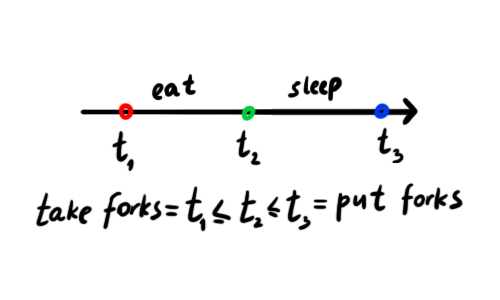 eat sleep
t₁ t₂ t₃
take forks = t₁ ≤ t₂ ≤ t₃ = put forks